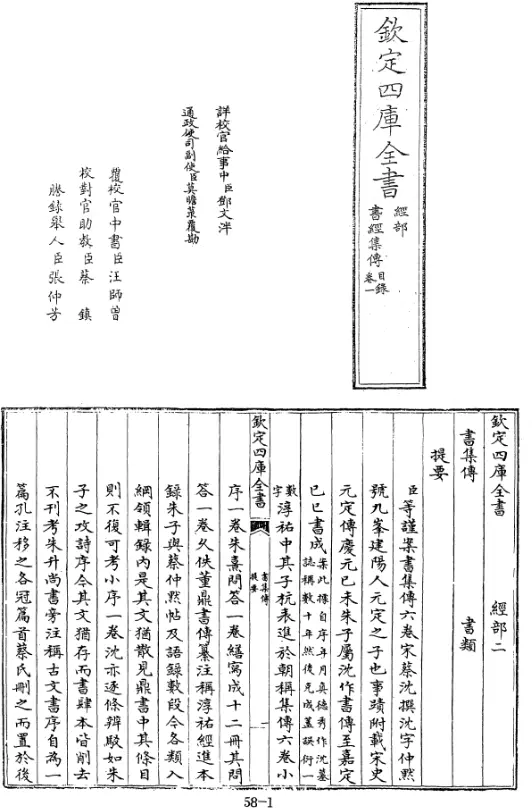 欽定四庫全書
經部
書經集傳
目錄
卷一
詳校官給事中臣鄭文泮
通政使司副使臣莫瞻菉覆勘
覆校官中書臣汪師曾
校對官助教臣蔡鎮
謄錄舉人臣張仲芳
欽定四庫全書 經部二
書集傳 書類
提要
臣等謹案書集傳六卷宋蔡沈撰沈字仲黙
號九峯建陽人元定之子也事蹟附載宋史
元定傳慶元己未朱子屬沈作書傳至嘉定
己巳書成案此據自序年月真德秀作沈墓
誌稱數十年然後克成蓋誤衍一
數字淳祐中其子杭表進於朝稱集傳六卷小
欽定四庫全書
書集傳
提要
一
序一卷朱熹問答一卷繕寫成十二冊其問
答一卷久佚董鼎書傳纂注稱淳祐經進本
錄朱子與蔡仲黙帖及語錄數段今各類入
綱領輯錄内是其文猶散見鼎書中其條目
則不復可考小序一卷沈亦逐條辨駁如朱
子之攻詩序今其文猶存而書肆本皆削去
不刊考朱升尚書旁注稱古文書序自為一
篇孔注移之各冠篇首蔡氏刪之而置於後
58-1